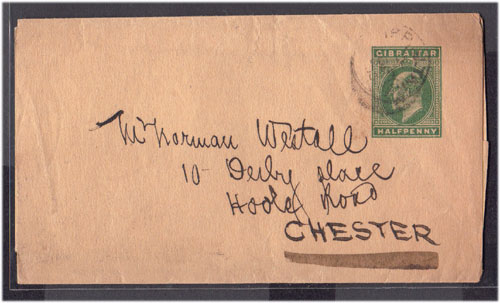 GIBRALTAR
HALFPENNY
Mr Norman Westall
10 Derby place
Hoole Road
CHESTER